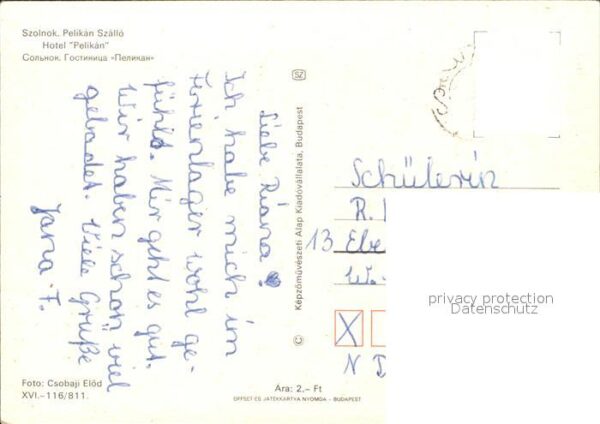 Szolnok. Pelikán Szálló
Hotel "Pelikán"
Сольнок. Гостиница «Пеликан»
Liebe Diana!
Ich habe mich im
Ferienlager wohl ge-
fühlt. Mir geht es gut.
Wir haben schon viel
gebadet. Viele Grüße
Jana F.
SZ
© Képzőművészeti Alap Kiadóvállalata, Budapest
Schülerin
R.
13 Ebe
W.-
X
N
privacy protection
Datenschutz
Foto: Csobaji Előd
XVI.-116/811.
Ára: 2.- Ft
OFFSET-ÉS JÁTÉKKÁRTYA NYOMDA - BUDAPEST